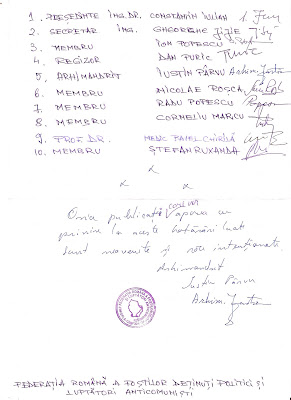 1. PREȘEDINTE ING. DR. CONSTANTIN IULIAN
2. SECRETAR ING. GHEORGHE JIJIE
3. MEMBRU ION POPESCU
4. REGIZOR DAN PURIC
5. ARHIMANDRIT IUSTIN PÂRVU
6. MEMBRU NICOLAE ROȘCA
7. MEMBRU RADU POPESCU
8. MEMBRU CORNELIU MARCU
9. PROF. DR. MEDIC PAVEL CHIRILĂ
10. MEMBRU ȘTEFAN RUXANDA
x x
x
Orice publicații vaporea cu
privire la aceste hotărâri luate
sunt neavenite și rău intenționate
Arhimandrit
Iustin Pârvu
FEDERAȚIA ROMÂNĂ A FOȘTILOR DEȚINUȚI POLITICI ȘI
LUPTĂTORI ANTICOMUNIȘTI